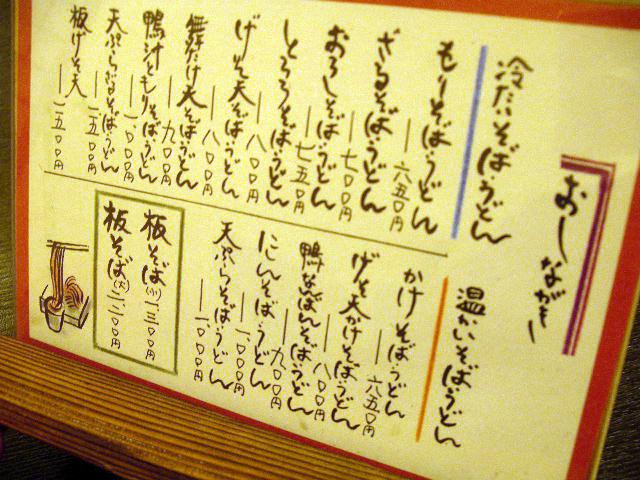 おしながき
冷たいそばうどん
もりそばうどん 六五〇円
ざるそばうどん 七〇〇円
おろしそばうどん 七五〇円
とろろそばうどん 八〇〇円
げそ天そばうどん 八〇〇円
舞茸天そばうどん 九〇〇円
鴨汁ともりそばうどん 一、〇〇〇円
天ぷらざるそばうどん 一五〇〇円
板げそ天 一、五〇〇円
温かいそばうどん
かけそばうどん 六五〇円
げそ天かけそばうどん 八〇〇円
鴨なばんそばうどん 九〇〇円
にしんそばうどん 一、〇〇〇円
天ぷらそばうどん 一〇〇〇円
板そば(小)一、三〇〇円
板そば(大)二、二〇〇円